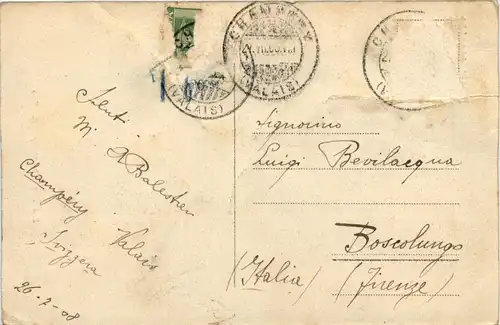 CHAMPÉRY
(VALAIS)
(VALAIS)
Saluti
M. A Balestieri
Champéry Valais
Svizzera
26-7-08
Signorino
Luigi Bevilacqua
Boscolungo
(Italia) (Firenze)